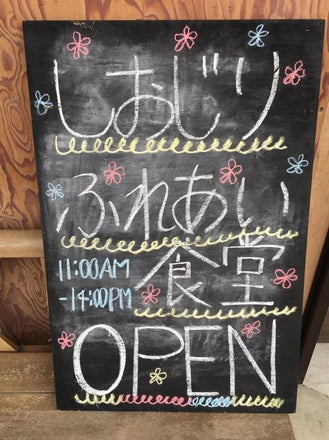 しおじり
ふれあい
11:00AM
-14:00PM
食堂
OPEN